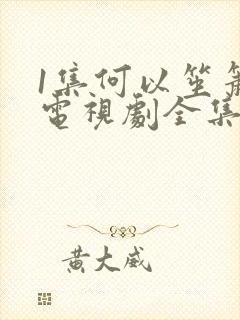 1集何以笙
電視劇全集
黃大威